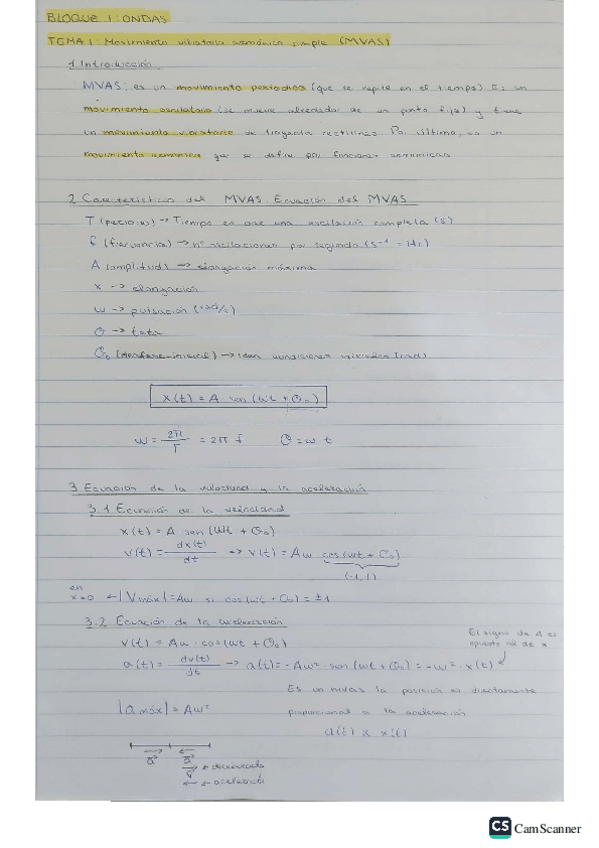 BLOQUE 1: ONDAS
TEMA 1: Movimiento vibratorio armónico simple (MVAS)
1 Introducción
MVAS: es un movimiento periódico (que se repite en el tiempo). Es un
movimiento oscilatorio (se mueve alrededor de un punto fijo) y tiene
un movimiento vibratorio de trayectoria rectilínea. Por último, es un
movimiento armónico que se define por funciones armónicas
2 Características del MVAS. Ecuación del MVAS
T (periodo) → Tiempo en que una oscilación completa (s)
f (frecuencia) → nº oscilaciones por segundo (s⁻¹ = Hz)
A (amplitud) → elongación máxima
x → elongación
ω → pulsación (rad/s)
θ → teta
θ₀ (desfase inicial) → condiciones iniciales (rad)
x(t) = A sen (ωt + θ₀)
ω = 2π/T = 2π f θ = ω t
3 Ecuación de la velocidad y la aceleración
3.1 Ecuación de la velocidad
x(t) = A sen (ωt + θ₀)
v(t) = dx(t)/dt → v(t) = Aω cos(ωt + θ₀)
(-1,1)
en x=0 ← |Vmáx| = Aω si cos(ωt + θ₀) = ±1
3.2 Ecuación de la aceleración
v(t) = Aω · cos(ωt + θ₀)
El signo de A es
opuesto al de x
a(t) = dv(t)/dt → a(t) = -Aω² · sen (ωt + θ₀) = -ω² · x(t)
Es un mvas la posición es directamente
|a máx| = Aω²
proporcional a la aceleración
a(t) α x(t)
a⃗ a⃗
v⃗
CS CamScanner